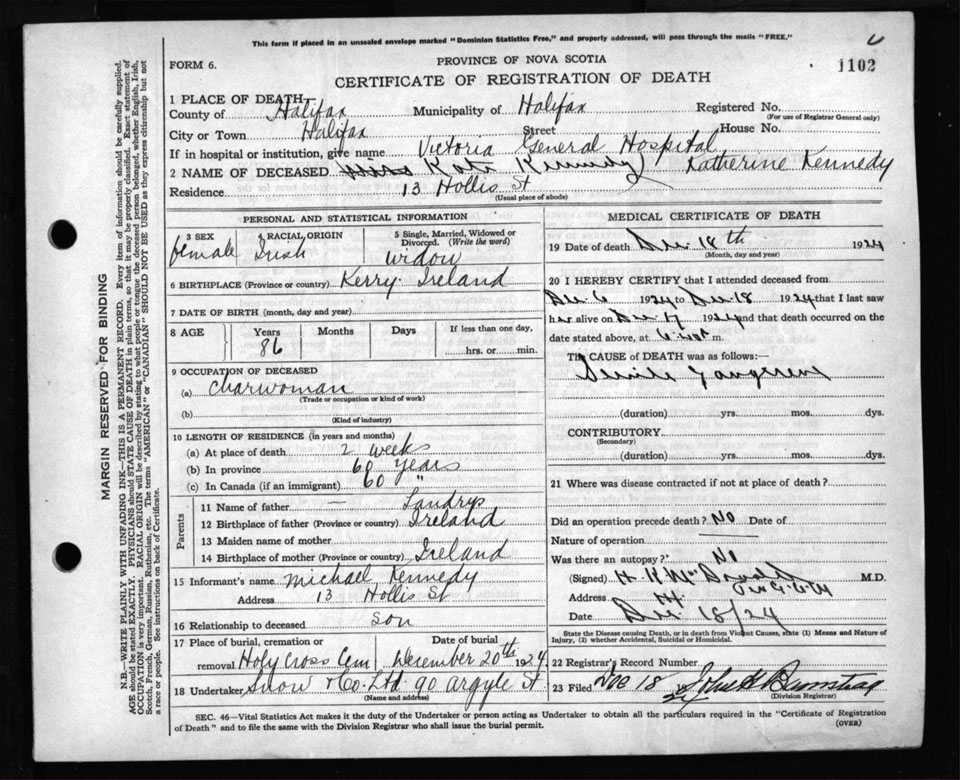 This form if placed in an unsealed envelope marked "Dominion Statistics Free," and properly addressed, will pass through the mails "FREE."
FORM 6.
PROVINCE OF NOVA SCOTIA
1102
CERTIFICATE OF REGISTRATION OF DEATH
1 PLACE OF DEATH—
County of Halifax Municipality of Halifax Registered No.
(For use of Registrar General only)
City or Town Halifax Street House No.
If in hospital or institution, give name Victoria General Hospital
2 NAME OF DECEASED Kate Kennedy Katherine Kennedy
Residence 13 Hollis St
(Usual place of abode)
PERSONAL AND STATISTICAL INFORMATION
3 SEX 4 RACIAL ORIGIN 5 Single, Married, Widowed or Divorced. (Write the word)
female Irish widow
6 BIRTHPLACE (Province or country) Kerry Ireland
7 DATE OF BIRTH (month, day and year)
8 AGE Years Months Days If less than one day,
86 hrs. or min.
9 OCCUPATION OF DECEASED
(a) charwoman
(Trade or occupation or kind of work)
(b)
(Kind of industry)
10 LENGTH OF RESIDENCE (in years and months)
(a) At place of death 2 weeks
(b) In province 60 years
(c) In Canada (if an immigrant) 60 "
Parents
11 Name of father — Landrys
12 Birthplace of father (Province or country) Ireland
13 Maiden name of mother
14 Birthplace of mother (Province or country) Ireland
15 Informant's name Michael Kennedy
Address 13 Hollis St
16 Relationship to deceased son
17 Place of burial, cremation or removal Holy Cross Cem Date of burial December 20th 1924
18 Undertaker Snow & Co. Ltd. 90 Argyle St
(Name and address)
MEDICAL CERTIFICATE OF DEATH
19 Date of death Dec. 18th 1924
(Month, day and year)
20 I HEREBY CERTIFY that I attended deceased from
Dec 6 1924 to Dec 18 1924 that I last saw
her alive on Dec 17 1924 and that death occurred on
the date stated above, at m.
The CAUSE OF DEATH was as follows:—
Senile Gangrene
(duration) yrs. mos. dys.
CONTRIBUTORY
(Secondary)
(duration) yrs. mos. dys.
21 Where was disease contracted if not at place of death?
Did an operation precede death? No Date of
Nature of operation
Was there an autopsy? No
(Signed) H. K. M.D.
Address
Date Dec 18/24
State the Disease causing Death, or in death from Violent Causes, state (1) Means and Nature of Injury, (2) whether Accidental, Suicidal or Homicidal.
22 Registrar's Record Number
23 Filed Dec 18 John
(Division Registrar)
SEC. 46—Vital Statistics Act makes it the duty of the Undertaker or person acting as Undertaker to obtain all the particulars required in the "Certificate of Registration
of Death" and to file the same with the Division Registrar who shall issue the burial permit.
(OVER)
MARGIN RESERVED FOR BINDING
N.B.—WRITE PLAINLY WITH UNFADING INK—THIS IS A PERMANENT RECORD. Every item of information should be carefully supplied.
AGE should be stated EXACTLY. PHYSICIANS should STATE CAUSE OF DEATH in plain terms, so that it may be properly classified. Exact statement of
OCCUPATION is very important. RACIAL ORIGIN will be described by stating to what people or tongue the deceased person belonged, whether English, Irish,
Scotch, French, German, Russian, Ruthenian, etc. The terms "AMERICAN" or "CANADIAN" SHOULD NOT BE USED as they express citizenship but not
a race or people. See instructions on back of Certificate.